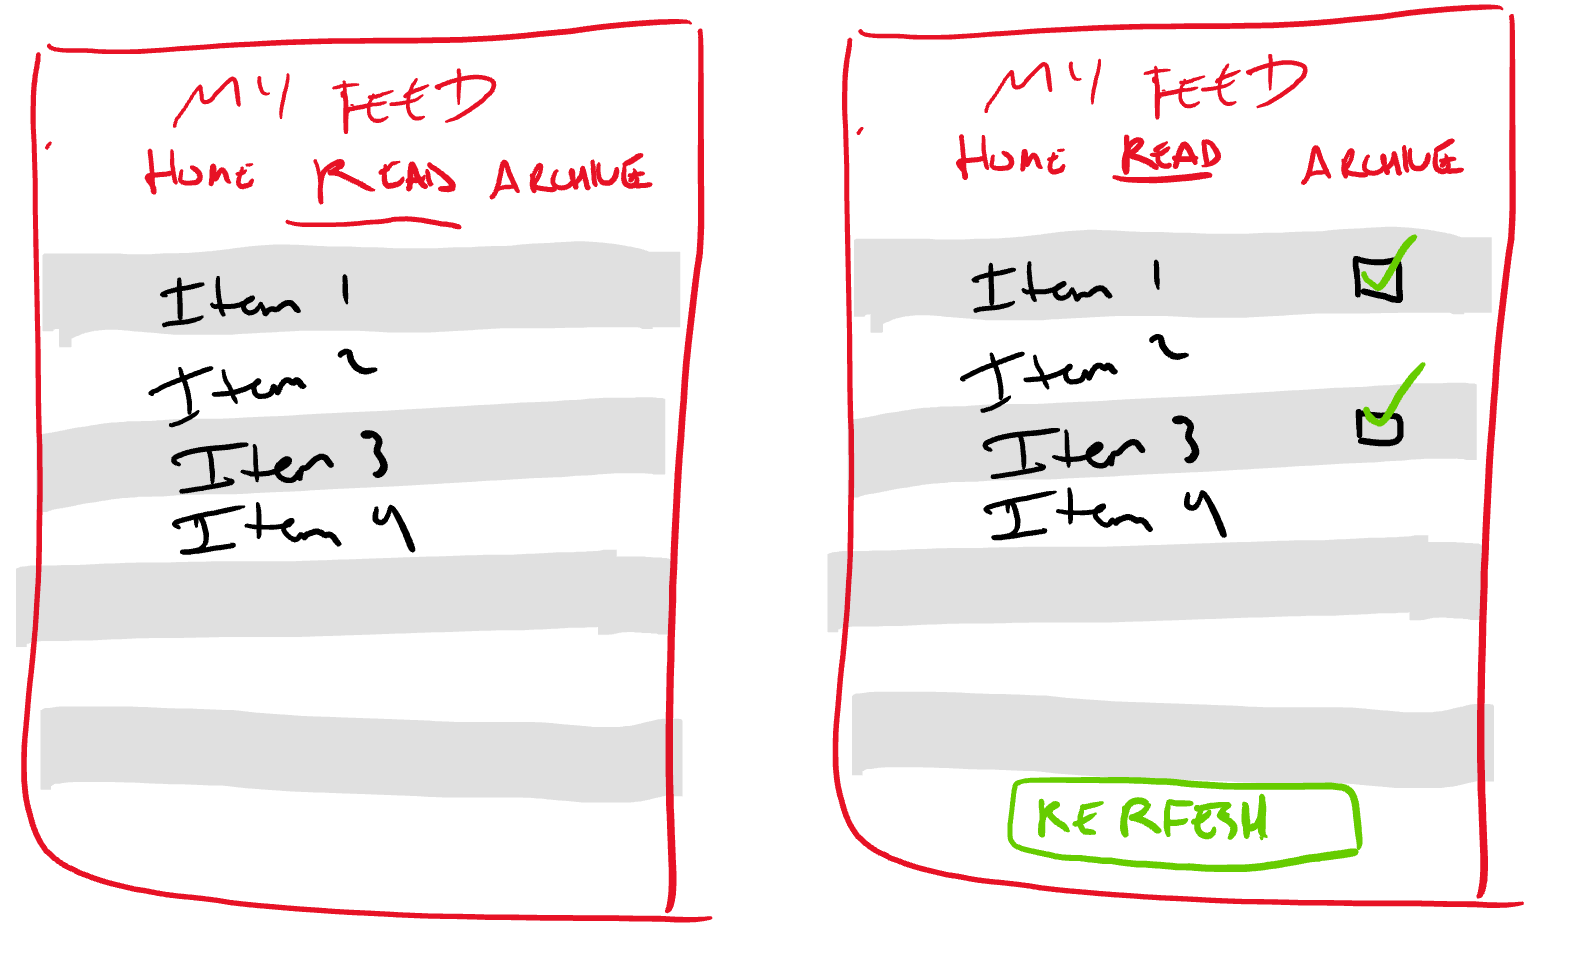 MY FEED
HOME READ ARCHIVE
Item 1
Item 2
Item 3
Item 4
MY FEED
HOME READ ARCHIVE
Item 1
Item 2
Item 3
Item 4
RERFESH